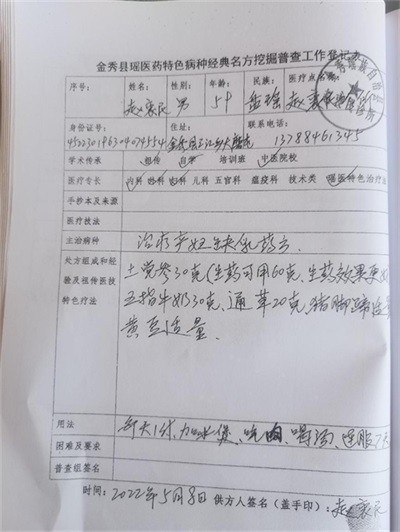 金秀县瑶医药特色病种经典名方挖掘普查工作登记表
序号： 姓名： 性别： 年龄： 民族： 医疗点名称：
男 59 盘瑶
身份证号： 住址： 联系电话：
13788461345
学术传承 祖传 自学 培训班 中医院校
医疗专长 内科 外科 妇科 儿科 五官科 瘟疫科 技术类 瑶医特色治疗
手抄本及来源
医疗技法
主治病种 治疗产妇缺乳药方
处方组成和经
验及祖传医技
特色疗法
土党参30克(生药可用60克,生药效果更
五指牛奶30克,通草20克,猪脚蹄适
黄豆适量.
用法 每天1付,加水煲、吃肉、喝汤、连服7天
困难及要求
普查组签名
时间：2022年5月8日 供方人签名（盖手印）：